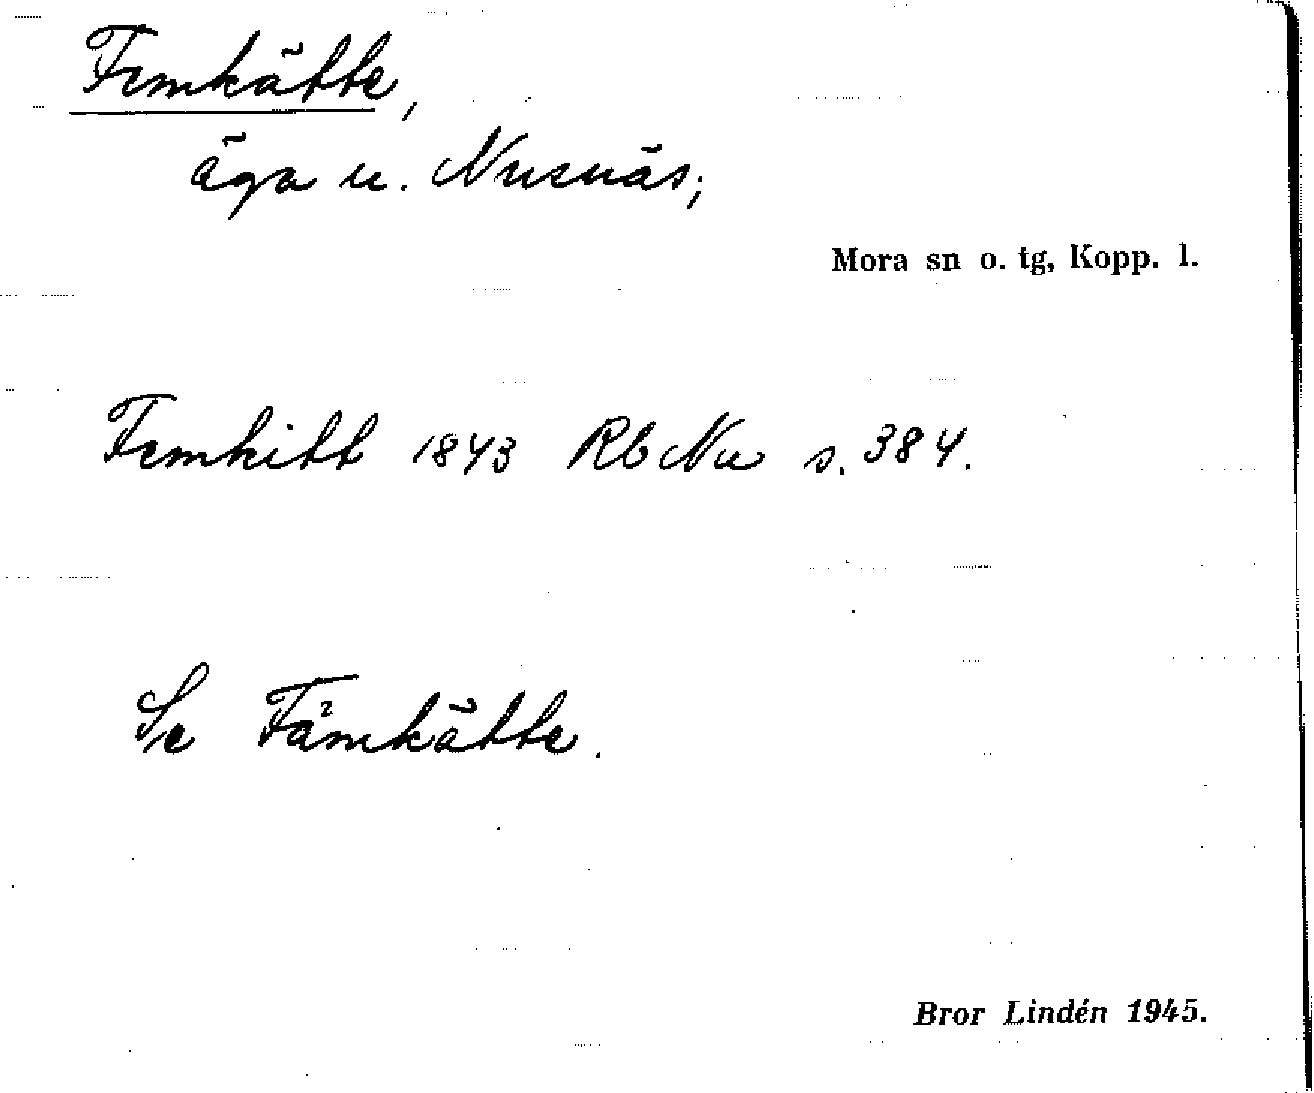 Femkätte,
äga u. Nusnäs;
Mora sn o. tg, Kopp. l.
Femkitt 1843 Rb Nu s. 384.
Se Fämkätte.
Bror Lindén 1945.